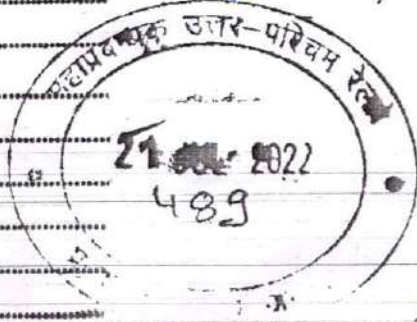 महाप्रबन्धक उत्तर-पश्चिम रेल
21 2022
489